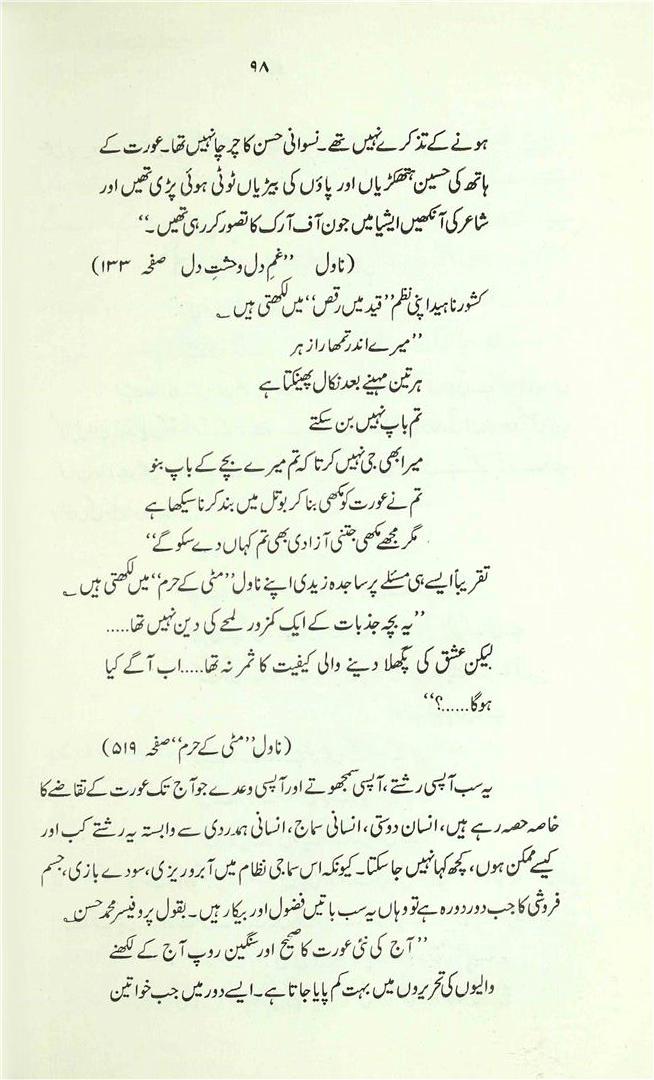 ۹۸
ہونے کے تذکرے نہیں تھے۔ نسوانی حسن کا چرچا نہیں تھا۔ عورت کے
ہاتھ کی حسین ہتھکڑیاں اور پاؤں کی بیڑیاں ٹوٹی ہوئی پڑی تھیں اور
شاعر کی آنکھیں ایشیا میں جون آف آرک کا تصور کر رہی تھیں۔‘‘
(ناول ’’غمِ دل وحشتِ دل صفحہ ۱۳۳)
کشور ناہید اپنی نظم ’’قید میں رقص‘‘ میں لکھتی ہیں ؂
’’میرے اندر تمھارا زہر
ہر تین مہینے بعد نکال پھینکتا ہے
تم باپ نہیں بن سکتے
میرا بھی جی نہیں کرتا کہ تم میرے بچے کے باپ بنو
تم نے عورت کو مکھی بنا کر بوتل میں بند کرنا سیکھا ہے
مگر مجھے مکھی جتنی آزادی بھی تم کہاں دے سکو گے‘‘
تقریباً ایسے ہی مسئلے پر ساجدہ زیدی اپنے ناول ’’مٹی کے حرم‘‘ میں لکھتی ہیں ؂
’’یہ بچہ جذبات کے ایک کمزور لمحے کی دین نہیں تھا.....
لیکن عشق کی پگھلا دینے والی کیفیت کا ثمر نہ تھا.....اب آگے کیا
ہوگا......؟‘‘
(ناول ’’مٹی کے حرم‘‘ صفحہ ۵۱۹)
یہ سب آپسی رشتے، آپسی سمجھوتے اور آپسی وعدے جو آج تک عورت کے تقاضے کا
خاصہ حصہ رہے ہیں، انسان دوستی، انسانی سماج، انسانی ہمدردی سے وابستہ یہ رشتے کب اور
کیسے ممکن ہوں، کچھ کہا نہیں جا سکتا۔ کیونکہ اس سماجی نظام میں آبرو ریزی، سودے بازی، جسم
فروشی کا جب دور دورہ ہے تو وہاں یہ سب باتیں فضول اور بیکار ہیں۔ بقول پروفیسر محمد حسن ؂
’’آج کی نئی عورت کا صحیح اور سنگین روپ آج کے لکھنے
والیوں کی تحریروں میں بہت کم پایا جاتا ہے۔ ایسے دور میں جب خواتین